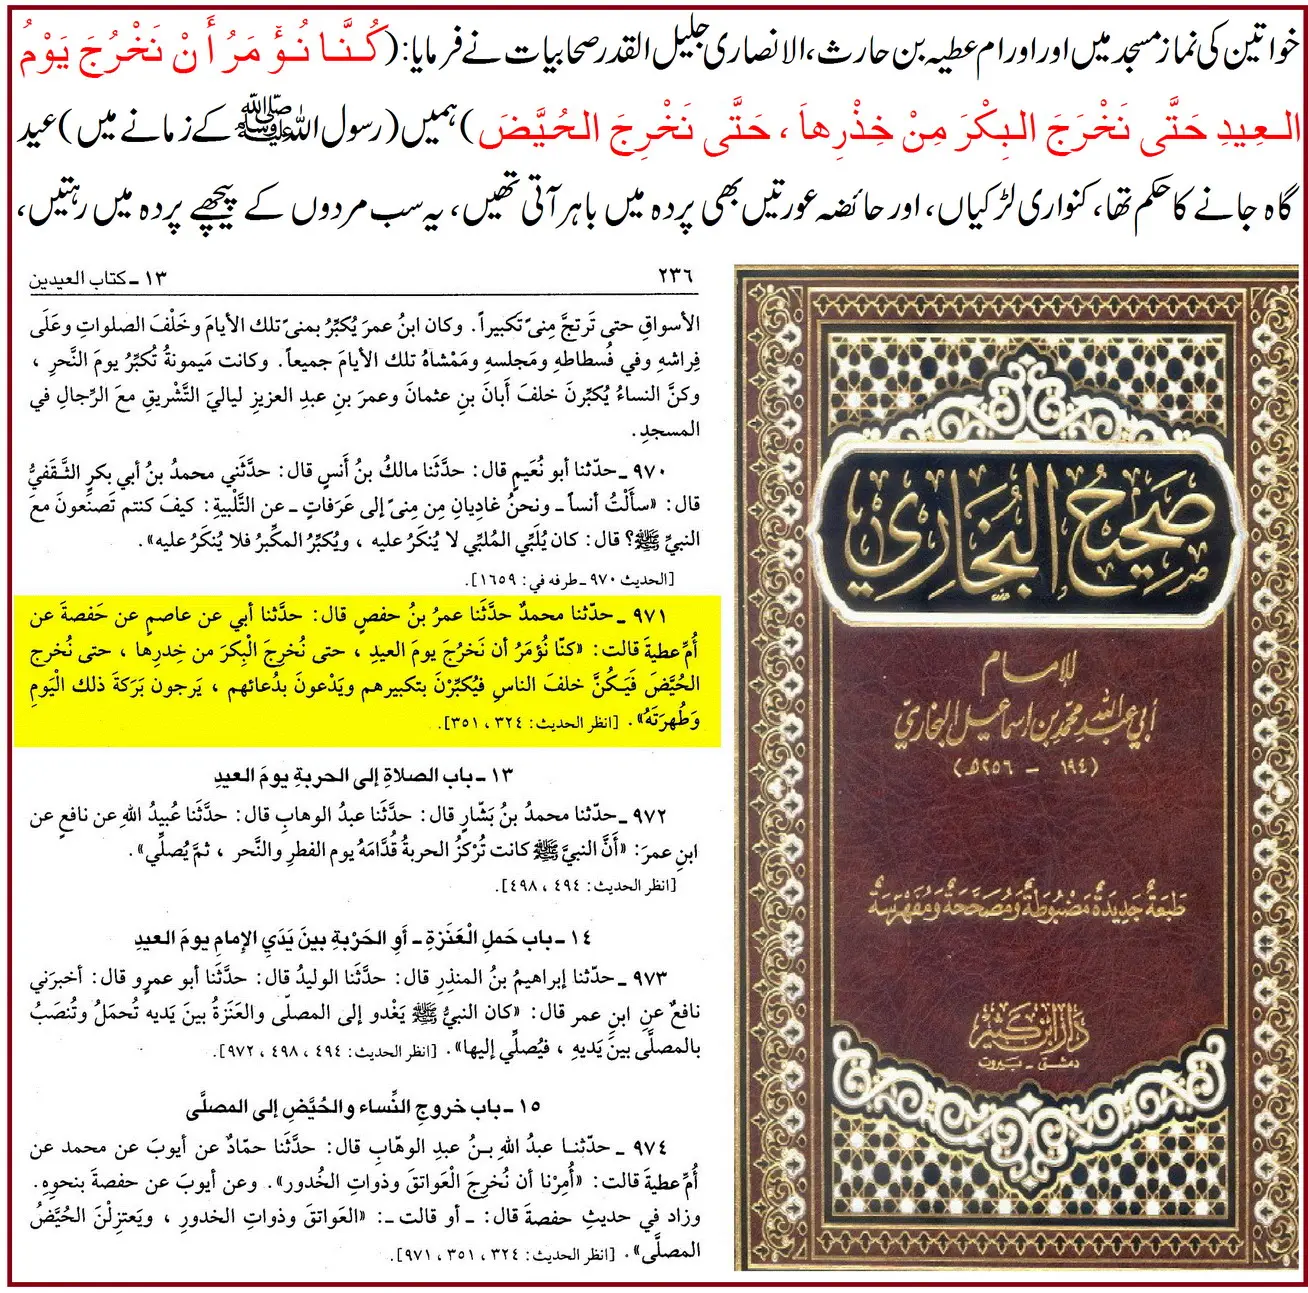 خواتین کی نماز مسجد میں اور اورام عطیہ بن حارث، الانصاری جلیل القدر صحابیات نے فرمایا: (كُنَّا نُؤْمَرُ أَنْ نَخْرُجَ يَوْمُ
العِيدِ حَتَّى نَخْرَجَ البِكْرَ مِنْ خِذْرِهاَ، حَتَّى نَخْرِجَ الحُيَّضَ) ہمیں (رسول اللہ ﷺ کے زمانے میں) عید
گاہ جانے کا حکم تھا، کنواری لڑکیاں، اور حائضہ عورتیں بھی پردہ میں باہر آتی تھیں، یہ سب مردوں کے پیچھے پردہ میں رہتیں،
٢٣٦
١٣ ـ كتاب العيدين
الأسواقِ حتى تَرتجَّ مِنىً تَكبيراً. وكان ابنُ عمرَ يُكبِّرُ بمنىً تلك الأيامَ وخَلْفَ الصلواتِ وعَلَى
فِراشهِ وفي فُسطاطهِ ومَجلسهِ ومَمْشاهُ تلك الأيامَ جميعاً. وكانت مَيمونةُ تُكبِّرُ يومَ النَّحرِ،
وكنَّ النساءُ يُكبِّرنَ خلفَ أبانَ بنِ عثمانَ وعمرَ بنِ عبدِ العزيزِ لياليَ التَّشريقِ معَ الرِّجالِ في
المسجدِ.
٩٧٠ ـ حدّثنا أبو نُعَيمٍ قال: حدَّثَنا مالكُ بنُ أَنسٍ قال: حدَّثَني محمدُ بنُ أبي بكرٍ الثَّقَفيُّ
قال: «سألْتُ أنساً ـ ونحنُ غاديانِ مِن مِنىً إلى عَرَفاتٍ ـ عن التَّلْبيةِ: كيفَ كنتم تَصنَعونَ معَ
النبيِّ ﷺ؟ قال: كان يُلَبِّي المُلبِّي لا يُنكَرُ عليه، ويُكبِّرُ المكبِّرُ فلا يُنكَرُ عليه».
[الحديث ٩٧٠ ـ طرفه في: ١٦٥٩].
٩٧١ ـ حدّثنا محمدٌ حدَّثَنا عمرُ بنُ حفصٍ قال: حدَّثنا أبي عن عاصمٍ عن حَفصةَ عن
أُمِّ عطيةَ قالت: «كنّا نُؤمَرُ أن نَخرُجَ يومَ العيدِ، حتى نُخرِجَ الْبِكرَ من خِدرِها، حتى نُخرج
الحُيَّضَ فَيَكُنَّ خلفَ الناسِ فيُكبِّرْنَ بتكبيرهم ويَدْعونَ بدُعائهم، يَرجون بَرَكةَ ذلك الْيَومِ
وَطُهرَتَهُ». [انظر الحديث: ٣٢٤، ٣٥١].
١٣ ـ باب الصلاةِ إلى الحربةِ يومَ العيدِ
٩٧٢ ـ حدّثنا محمدُ بنُ بَشّارٍ قال: حدَّثَنا عبدُ الوهابِ قال: حدَّثَنا عُبيدُ اللهِ عن نافعٍ عن
ابنِ عمرَ: «أَنَّ النبيَّ ﷺ كانت تُرْكَزُ الحربةُ قُدَّامَهُ يوم الفطرِ والنَّحر، ثمَّ يُصلِّي».
[انظر الحديث: ٤٩٤، ٤٩٨].
١٤ ـ باب حَملِ الْعَنَزةِ ـ أوِ الحَرْبةِ بينَ يَدَيِ الإمامِ يومَ العيدِ
٩٧٣ ـ حدّثنا إبراهيمُ بنُ المنذِرِ قال: حدَّثَنا الوليدُ قال: حدَّثَنا أبو عمرٍو قال: أخبرَني
نافعٌ عنِ ابنِ عمر قال: «كان النبيُّ ﷺ يَغْدو إلى المصلَّى والعَنَزةُ بينَ يديه تُحمَلُ وتُنصَبُ
بالمصلَّى بينَ يَديهِ، فيُصلِّي إليها». [انظر الحديث: ٤٩٤، ٤٩٨، ٩٧٢].
١٥ ـ باب خروجِ النِّساء والحُيَّضِ إلى المصلَّى
٩٧٤ ـ حدّثنا عبدُ اللهِ بنُ عبدِ الوهّابِ قال: حدَّثَنا حمّادٌ عن أيوبَ عن محمد عن
أُمِّ عطيةَ قالت: «أُمِرْنا أن نُخرِجَ الْعَواتقَ وذَواتِ الخُدور». وعن أيوبَ عن حفصةَ بنحوِهِ.
وزاد في حديثِ حفصةَ قال: ـ أو قالت ـ: «العَواتقَ وذَواتِ الخدورِ، ويَعتزِلْنَ الحُيَّضُ
المصلَّى». [انظر الحديث: ٣٢٤، ٣٥١، ٩٧١].
صَحِيحُ البُخَارِي
للإمام
أبي عبد الله محمد بن إسماعيل البخاري
(١٩٤ - ٢٥٦هـ)
طَبعَةٌ جَدِيدَةٌ مَضْبُوطَةٌ وَمُصَحَّحَةٌ وَمُفَهْرَسَةٌ
دار ابن كثير
دمشق - بيروت